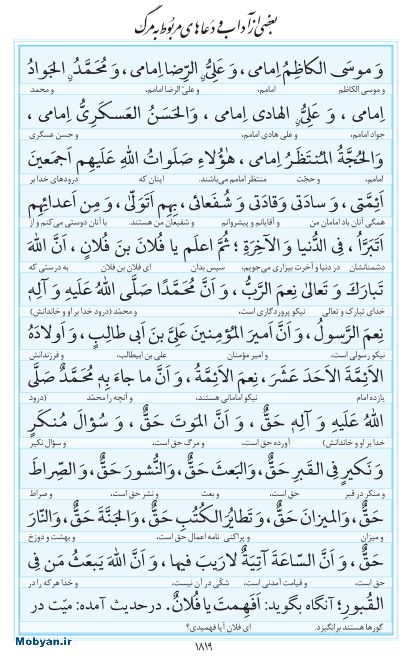 بعضی از آداب و دعاهای مربوط به مرگ
وَ موسَی الکاظِمُ اِمامی، وَ عَلِیُّ، الرِّضا اِمامی، وَ مُحَمَّدُ، الجَوادُ
و موسی الکاظم امامم، و علیّ الرضا امامم، و محمد
اِمامی، وَ عَلِیُّ، الهادی اِمامی، وَالحَسَنُ العَسکَرِیُّ اِمامی،
جواد امامم، و علی هادی امامم، و حسن عسکری
وَالحُجَّةُ المُنتَظَرُ اِمامی، هٰؤُلاءِ صَلَواتُ اللهِ عَلَیهِم اَجمَعینَ
امامم، و حجّت منتظر امامم می‌باشند. اینان که درودهای خدا بر
اَئِمَّتی، وَ سادَتی وَقادَتی وَ شُفَعائی، بِهِم اَتَوَلّیٰ، وَ مِن اَعدائِهِم
همگی آنان باد امامان من و آقایانم و پیشروانم و شفیعان من هستند. با آنان دوستی می‌کنم و از
اَتَبَرَّأُ، فِی الدُّنیا وَ الآخِرَةِ؛ ثُمَّ اعلَم یا فُلانَ بنَ فُلانٍ، اَنَّ اللهَ
دشمنانشان در دنیا و آخرت بیزاری می‌جویم، سپس بدان ای فلان بن فلان به درستی که
تَبارَکَ وَ تَعالیٰ نِعمَ الرَّبُّ، وَ اَنَّ مُحَمَّدًا صَلَّی اللهُ عَلَیهِ وَ آلِهِ
خدای تبارک و تعالی نیکو پروردگاری است، و محمّد (درود خدا بر او و خاندانش)
نِعمَ الرَّسولُ، وَ اَنَّ اَمیرَ المُؤمِنینَ عَلِیَّ بنَ اَبی طالِبٍ، وَ اَولادَهُ
نیکو رسولی است، و امیر مؤمنان علی بن ابیطالب، و فرزندانش
الاَئِمَّةَ الاَحَدَ عَشَرَ، نِعمَ الاَئِمَّةُ، وَ اَنَّ ما جاءَ بِهِ مُحَمَّدٌ صَلَّی
یازده امام نیکو امامانی هستند، و آنچه را محمّد (درود
اللهُ عَلَیهِ وَ آلِهِ حَقٌّ، وَ اَنَّ المَوتَ حَقٌّ، وَ سُؤالَ مُنکَرٍ
خدا بر او و خاندانش) آورده حق است، و مرگ حق است، و سؤال نکیر
وَ نَکیرٍ فِی القَبرِ حَقٌّ، وَالبَعثَ حَقٌّ، وَالنُّشورَ حَقٌّ، وَ الصِّراطَ
و منکر در قبر حق است، و بعث و نشر حق است، و صراط
حَقٌّ، وَالمیزانَ حَقٌّ، وَ تَطایُرَ الکُتُبِ حَقٌّ، وَالجَنَّةَ حَقٌّ، وَالنّارَ
و میزان و پراکنی نامه اعمال حق است، و بهشت و دوزخ
حَقٌّ، وَ اَنَّ السّاعَةَ آتِیَةٌ لارَیبَ فیها، وَ اَنَّ اللهَ یَبعَثُ مَن فِی
حق است، و قیامت آمدنی است، شکّی در آن نیست، و خدا هر که را در
القُبورِ؛ آنگاه بگوید: اَفَهِمتَ یا فُلانُ. در حدیث آمده: میّت در
گورها هستند برانگیزد. ای فلان آیا فهمیدی؟
Mobyan.ir
۱۸۱۹